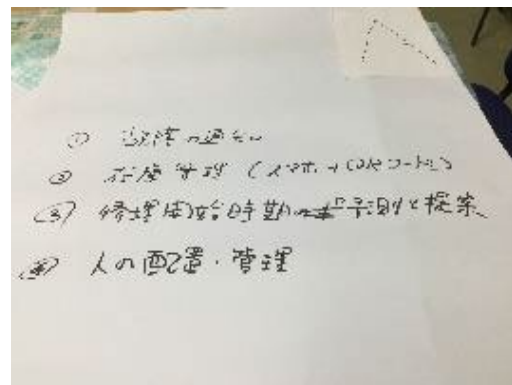 ① 故障の通知
② 在庫管理（スマホ＋QRコード）
③ 修理開始時動の予測と提案
④ 人の配置・管理